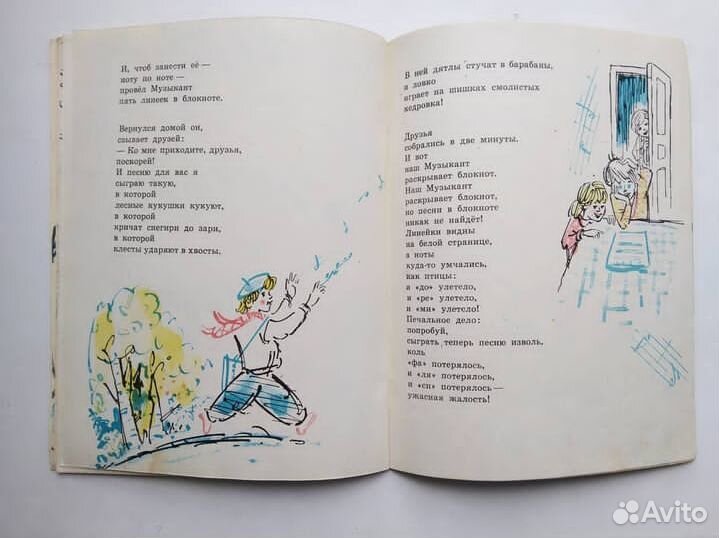 И, чтоб занести её —
ноту по ноте —
провёл Музыкант
пять линеек в блокноте.
Вернулся домой он,
сзывает друзей:
— Ко мне приходите, друзья,
поскорей!
И песню для вас я
сыграю такую,
в которой
лесные кукушки кукуют,
в которой
кричат снегири до зари,
в которой
клесты ударяют в хвосты,
В ней дятлы стучат в барабаны,
и ловко
играет на шишках смолистых
кедровка!
Друзья
собрались в две минуты.
И вот
наш Музыкант
раскрывает блокнот.
Наш Музыкант
раскрывает блокнот,
но песни в блокноте
никак не найдёт!
Линейки видны
на белой странице,
а ноты
куда-то умчались,
как птицы:
и «до» улетело,
и «ре» улетело,
и «ми» улетело!
Печальное дело:
попробуй,
сыграть теперь песню изволь.
коль
«фа» потерялось,
и «ля» потерялось,
и «си» потерялось —
ужасная жалость!
Avito